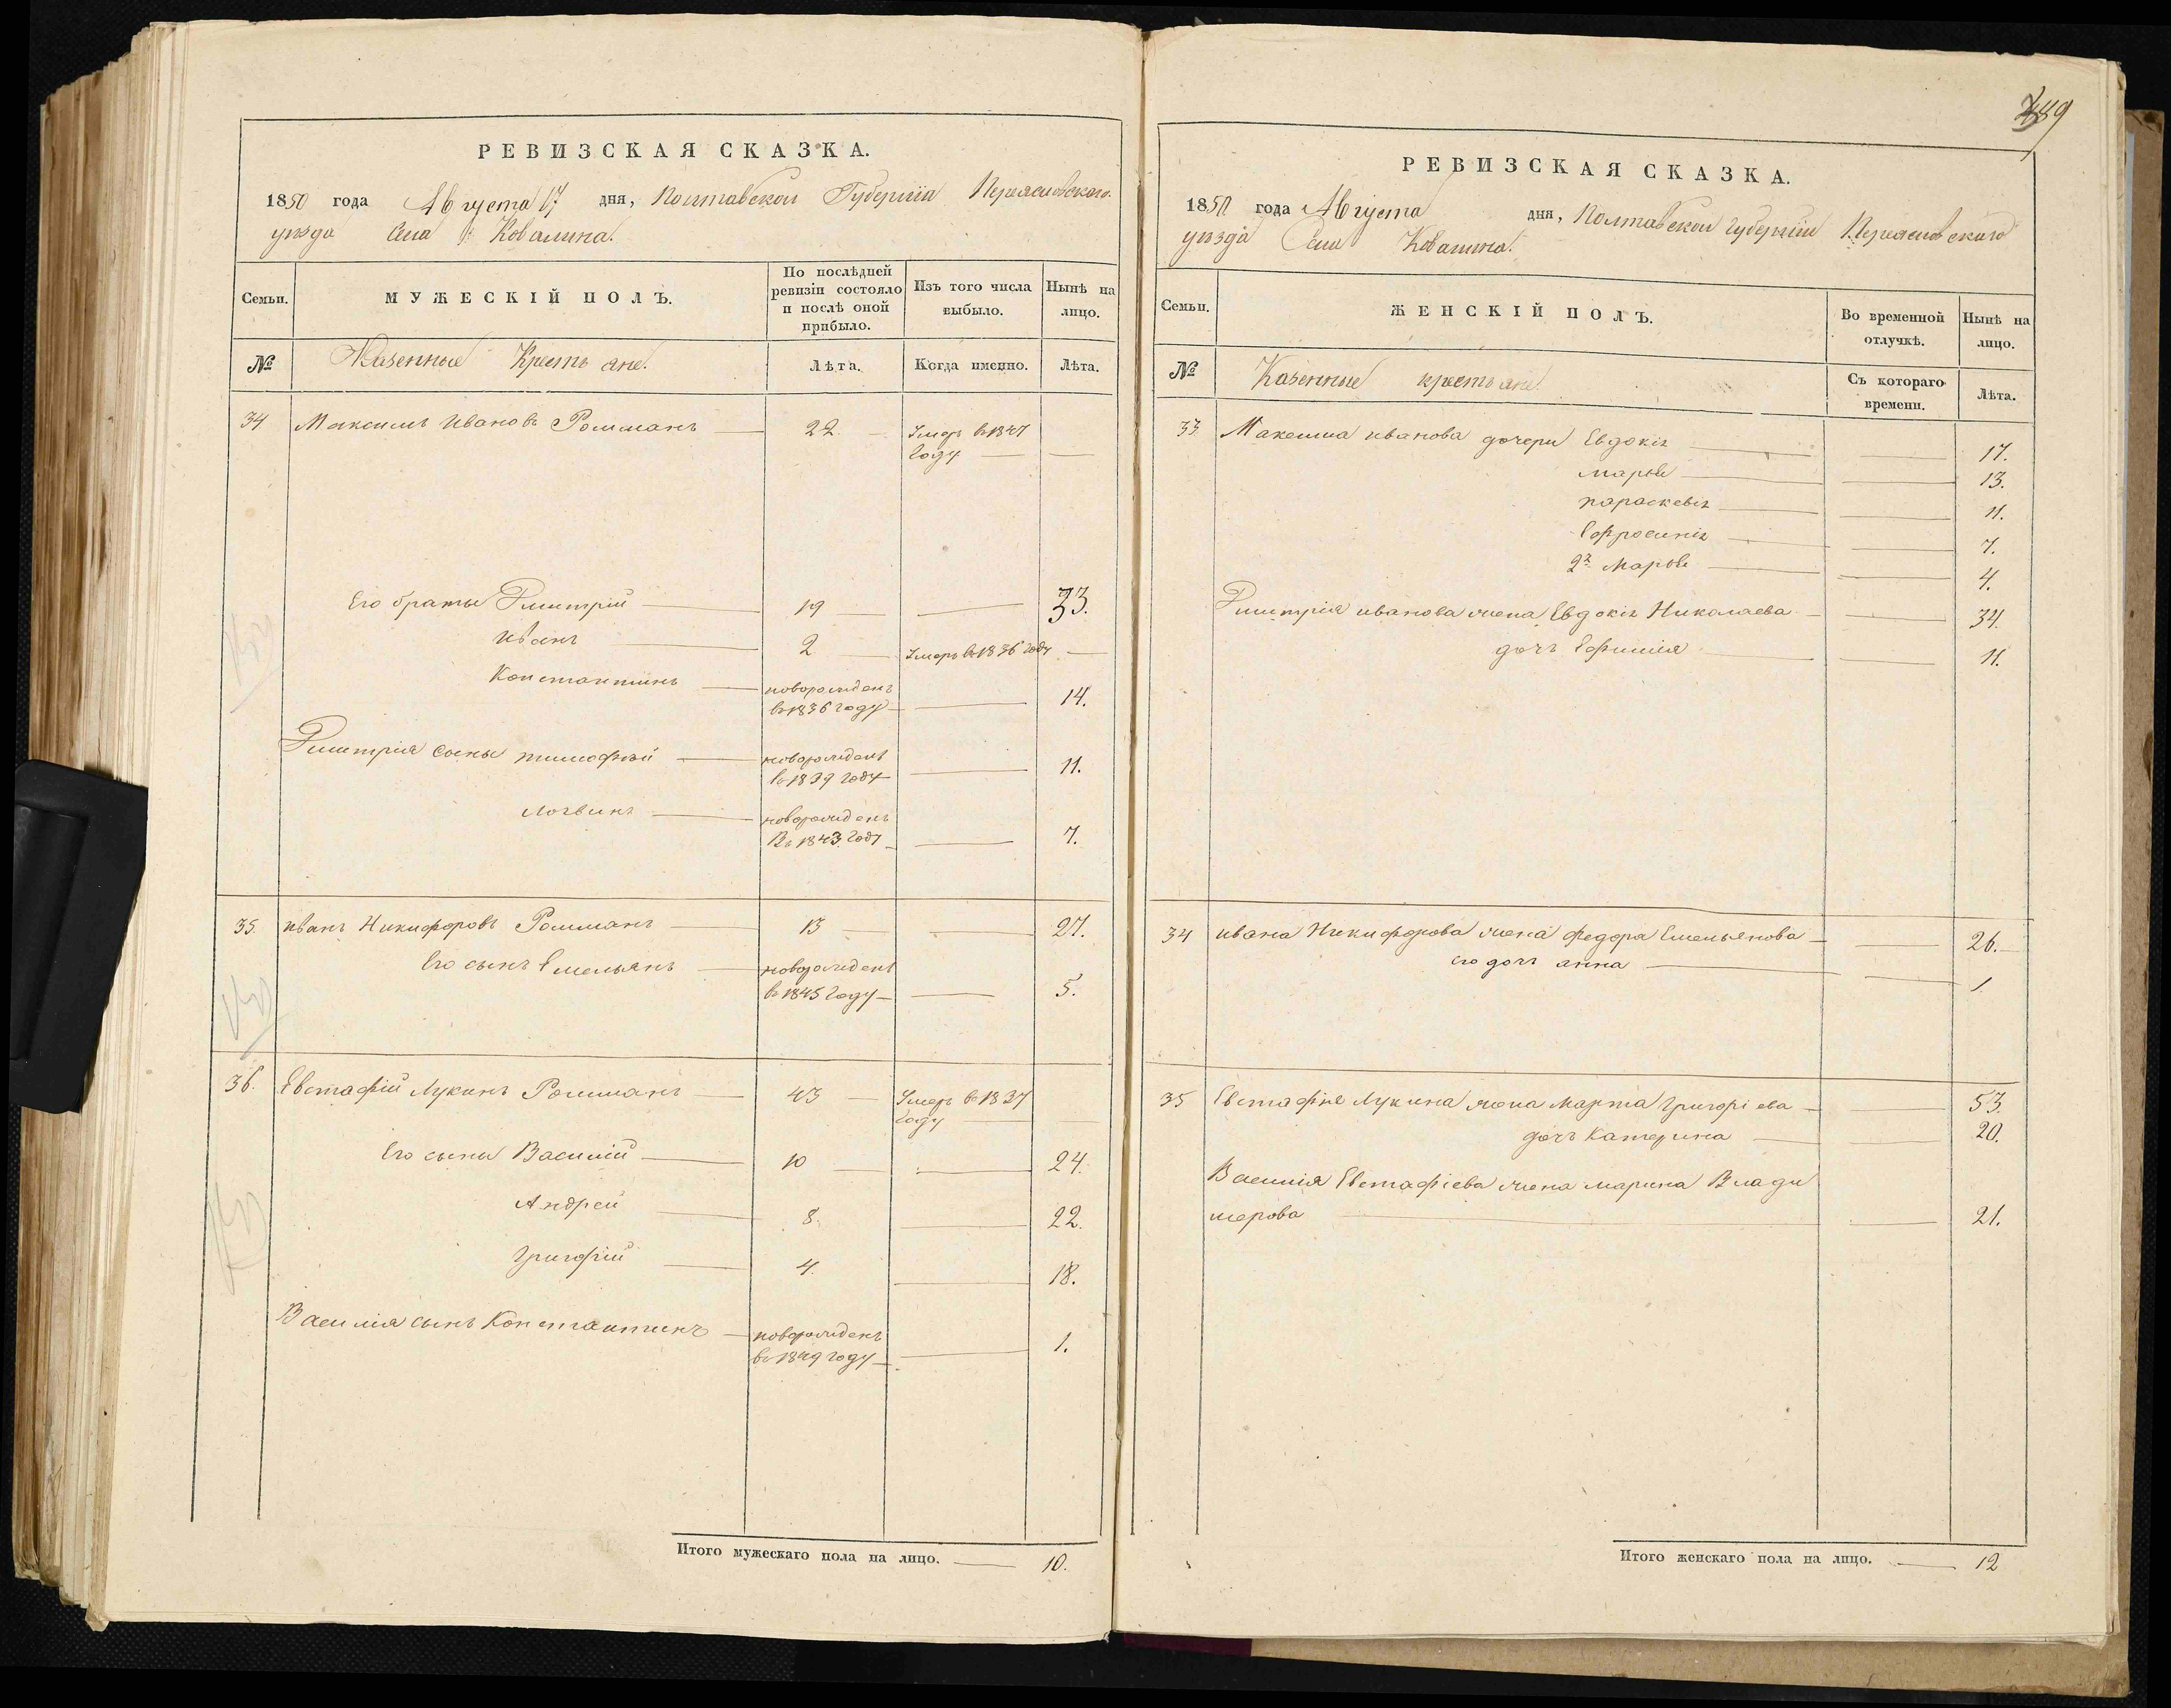 РЕВИЗСКАЯ СКАЗКА.
1850 года Августа 17 дня, Полтавской Губерніи Переяславскаго
уезда Села Ковалина.
Семьи.
МУЖЕСКІЙ ПОЛЪ.
По послѣдней ревизіи состояло и послѣ оной прибыло.
Изъ того числа выбыло.
Нынѣ на лицо.
№
Казенные Крестьяне.
Лѣта.
Когда именно.
Лѣта.
34 Максимъ Ивановъ 22 Умеръ в 1847
году
Его братья Дмитрій 19 33.
Иванъ 2 Умеръ в 1836 году
Константинъ новорожденъ
в 1836 году 14.
Дмитрія сыны тимофѣй новорожденъ
в 1839 году 11.
Логвинъ новорожденъ
В 1843 году 7.
35. иванъ Никифоровъ 13 27.
Его сынъ Емельянъ новорожденъ
в 1845 году 5.
36. Евстафій Лукинъ 43 Умеръ в 1837
году
Его сыны Василій 10 24.
Андрей 8. 22.
Григорій 4. 18.
Василія сынъ Константинъ новорожденъ
в 1849 году 1.
Итого мужескаго пола на лицо. 10.
389
РЕВИЗСКАЯ СКАЗКА.
1850 года Августа дня, Полтавской губерніи Переяславскаго
уезда Села Ковалина.
Семьи.
ЖЕНСКІЙ ПОЛЪ.
Во временной отлучкѣ.
Нынѣ на лицо.
№
Казенные крестьяне.
Съ котораго времени.
Лѣта.
33 Максима иванова дочери Евдокія 17.
Марья 13.
параскевія 11.
Ефросинія 7.
2я Марья 4.
Дмитрія иванова жена Евдокія Николаева 34.
дочъ Ефимія 11.
34 ивана Никифорова жена федора Емельянова 26.
его дочъ анна 1
35 Евстафія Лукина жена Марта Григоріева 53.
дочъ Катерина 20.
Василія Евстафіева жена марина Влади
мерова 21.
Итого женскаго пола на лицо. 12